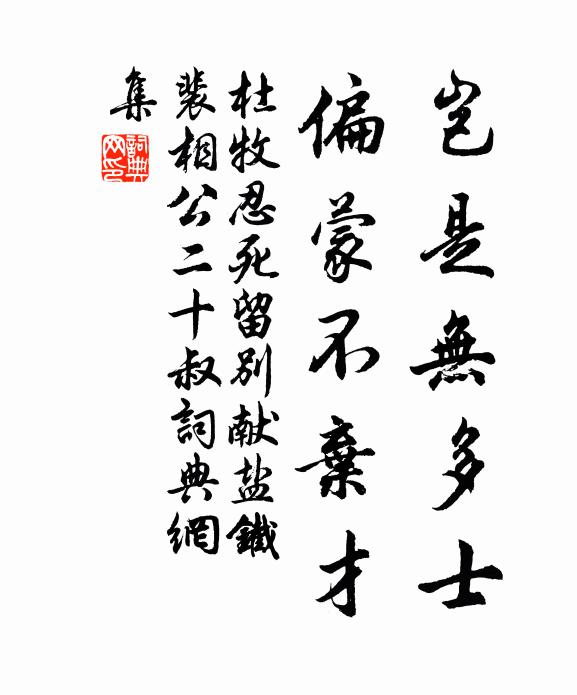 岂是無多士
偏蒙不棄才
杜牧忍死留别献盐鐵
裴相公二十叔詞典網
集
詞典
网印